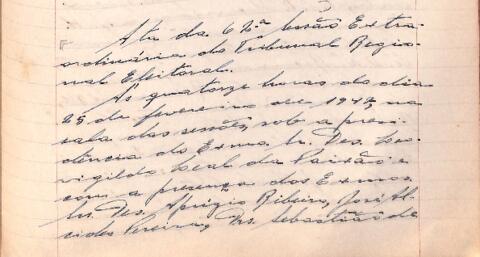 Ata da 62ª Sessão Extra-
ordinária do Tribunal Regio-
nal Eleitoral.
Às quatorze horas do dia
25 de fevereiro de 1947, na
sala das sessões, sob a presi-
dência do Exmo. Sr. Des. Leo-
vigildo Leal da Paixão e
com a presença dos Exmos.
Srs. Des. Aprígio Ribeiro, José Al-
cides Pereira, Drs. Sebastião de